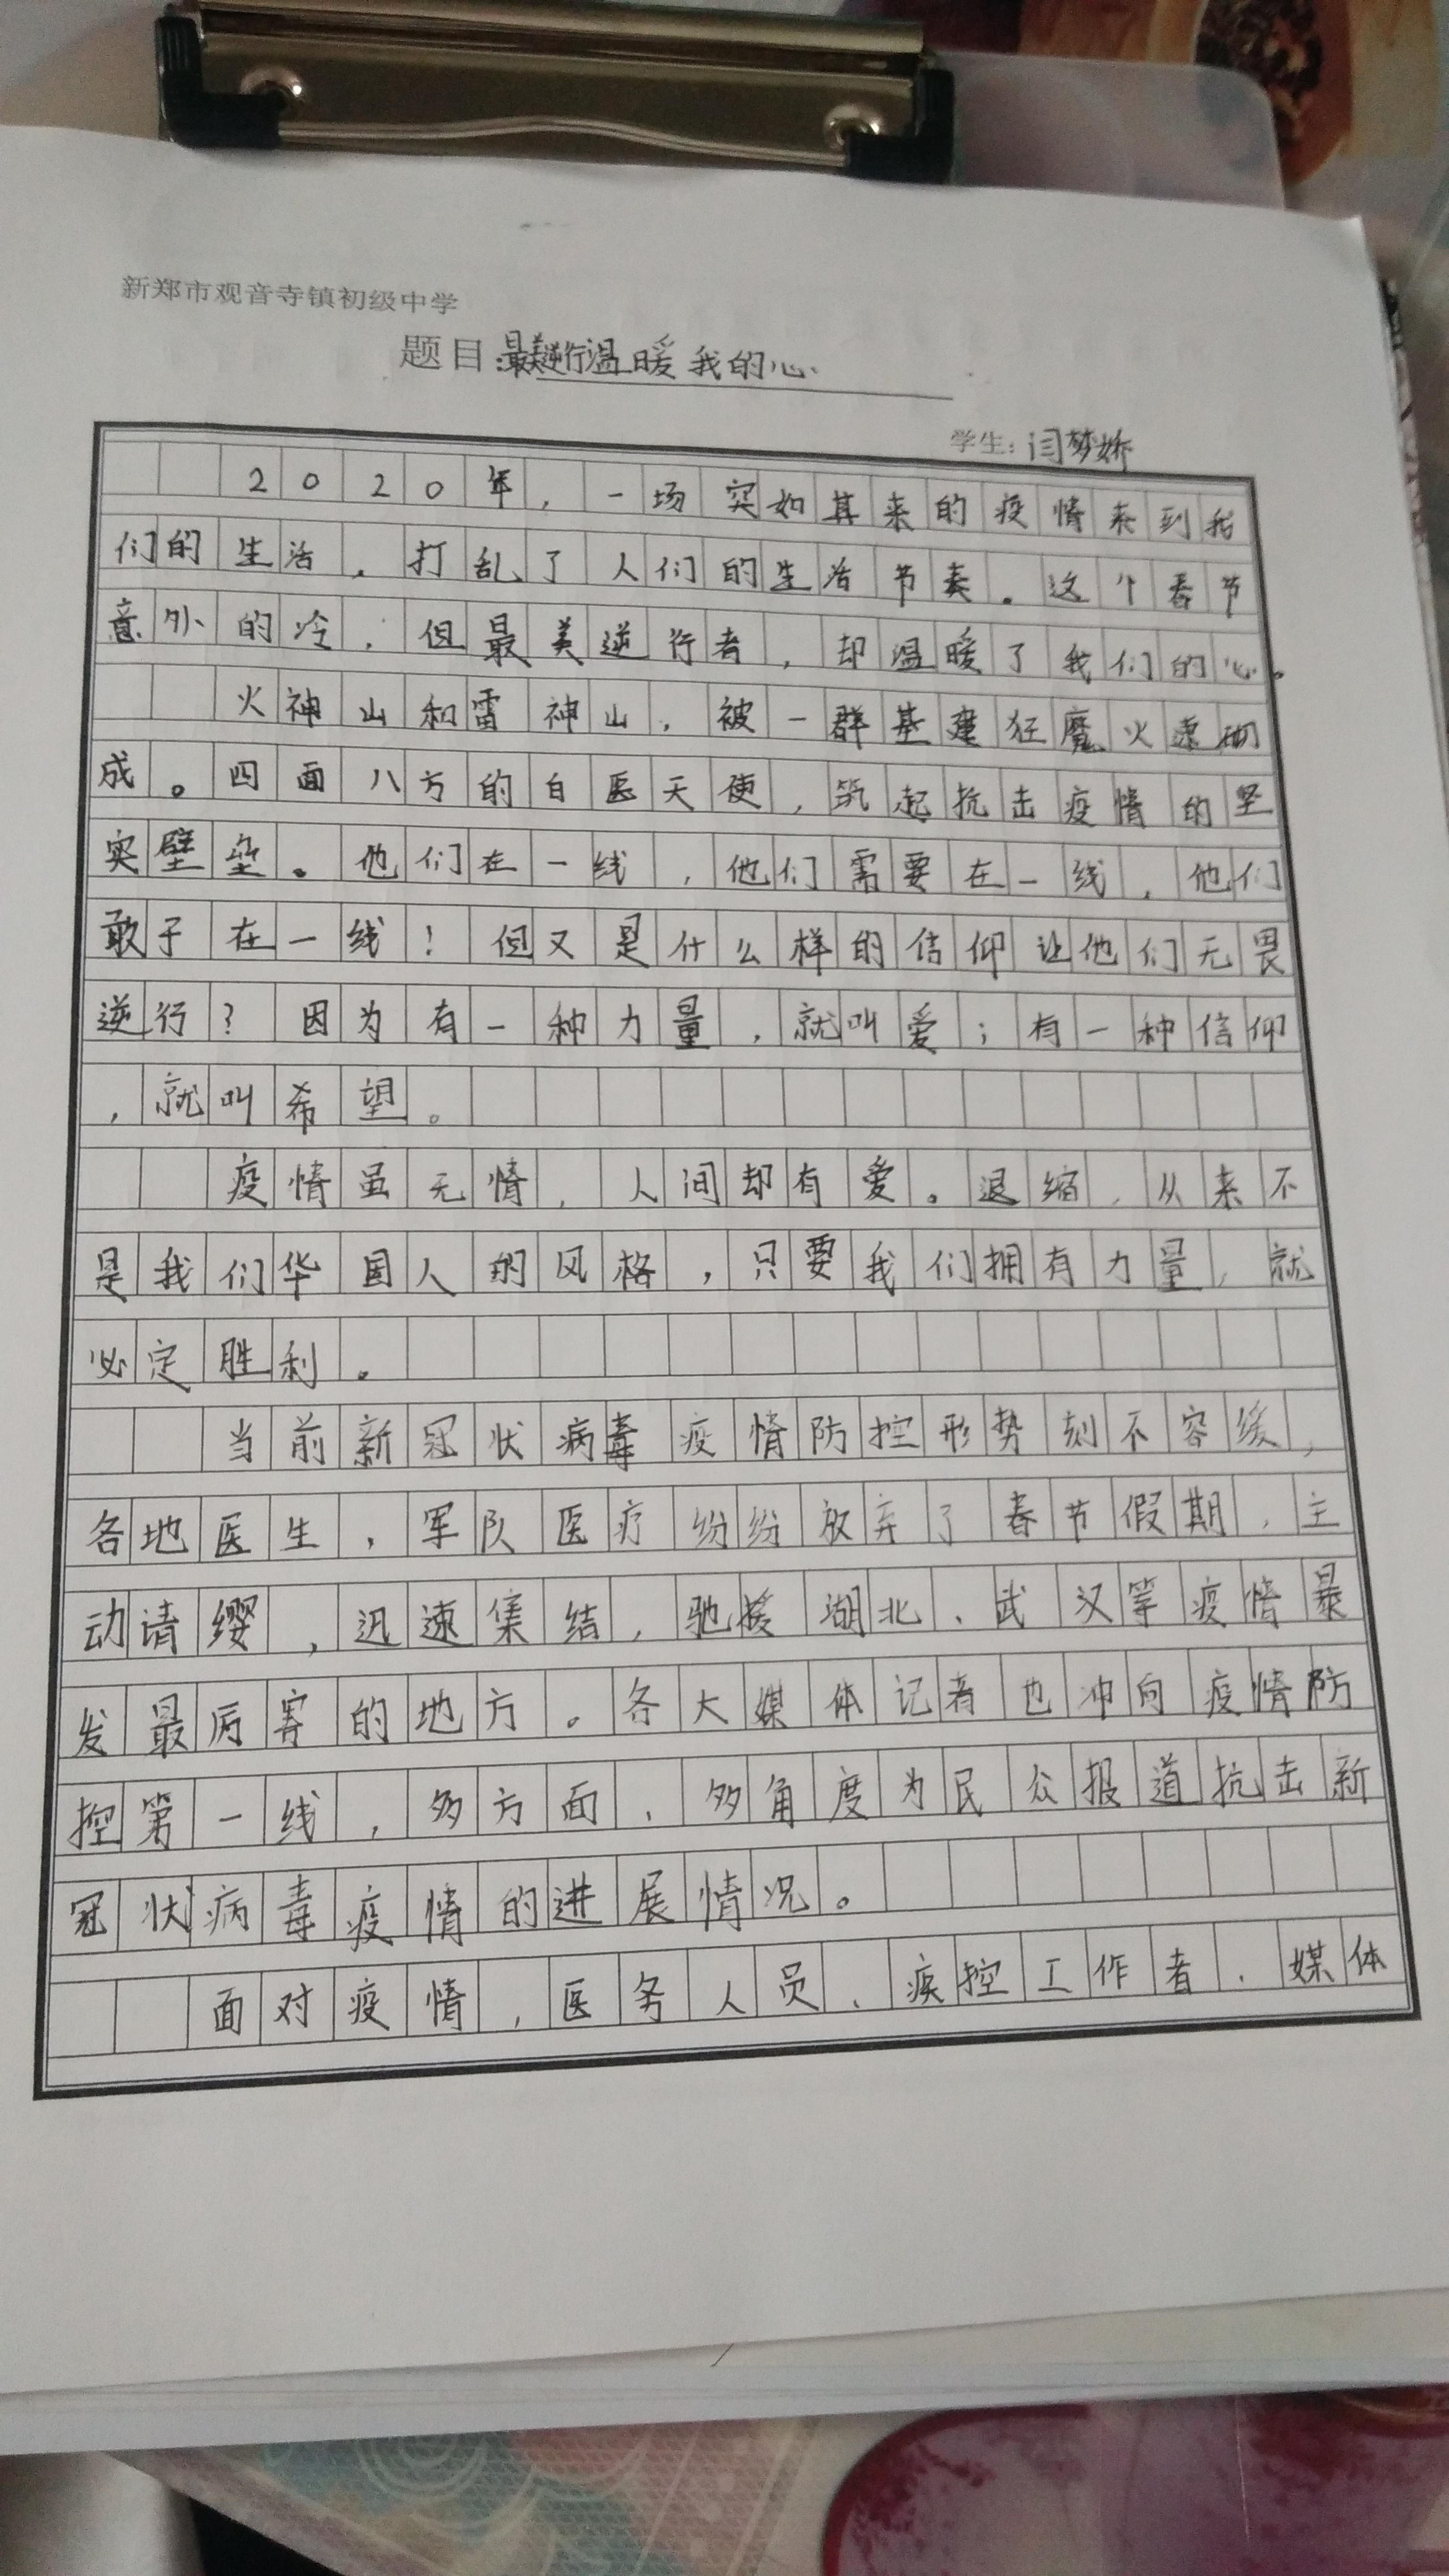 新郑市观音寺镇初级中学
题目:最美逆行温暖我的心
学生:闫梦娇
2020年,一场突如其来的疫情来到我
们的生活,打乱了人们的生活节奏。这个春节
意外的冷,但最美逆行者,却温暖了我们的心。
火神山和雷神山,被一群基建狂魔火速
成。四面八方的白医天使,筑起抗击疫情的坚
实壁垒。他们在一线,他们需要在一线,他们
敢于在一线!但又是什么样的信仰让他们无畏
逆行?因为有一种力量,就叫爱;有一种信仰
,就叫希望。
疫情虽无情,人间却有爱。退缩,从来不
是我们华国人的风格,只要我们拥有力量,就
必定胜利。
当前新冠状病毒疫情防控形势刻不容缓,
各地医生,军队医疗纷纷放弃了春节假期,主
动请缨,迅速集结,驰援湖北、武汉等疫情暴
发最厉害的地方。各大媒体记者也冲向疫情防
控第一线,多方面,多角度为民众报道抗击新
冠状病毒疫情的进展情况。
面对疫情,医务人员、疾控工作者、媒体